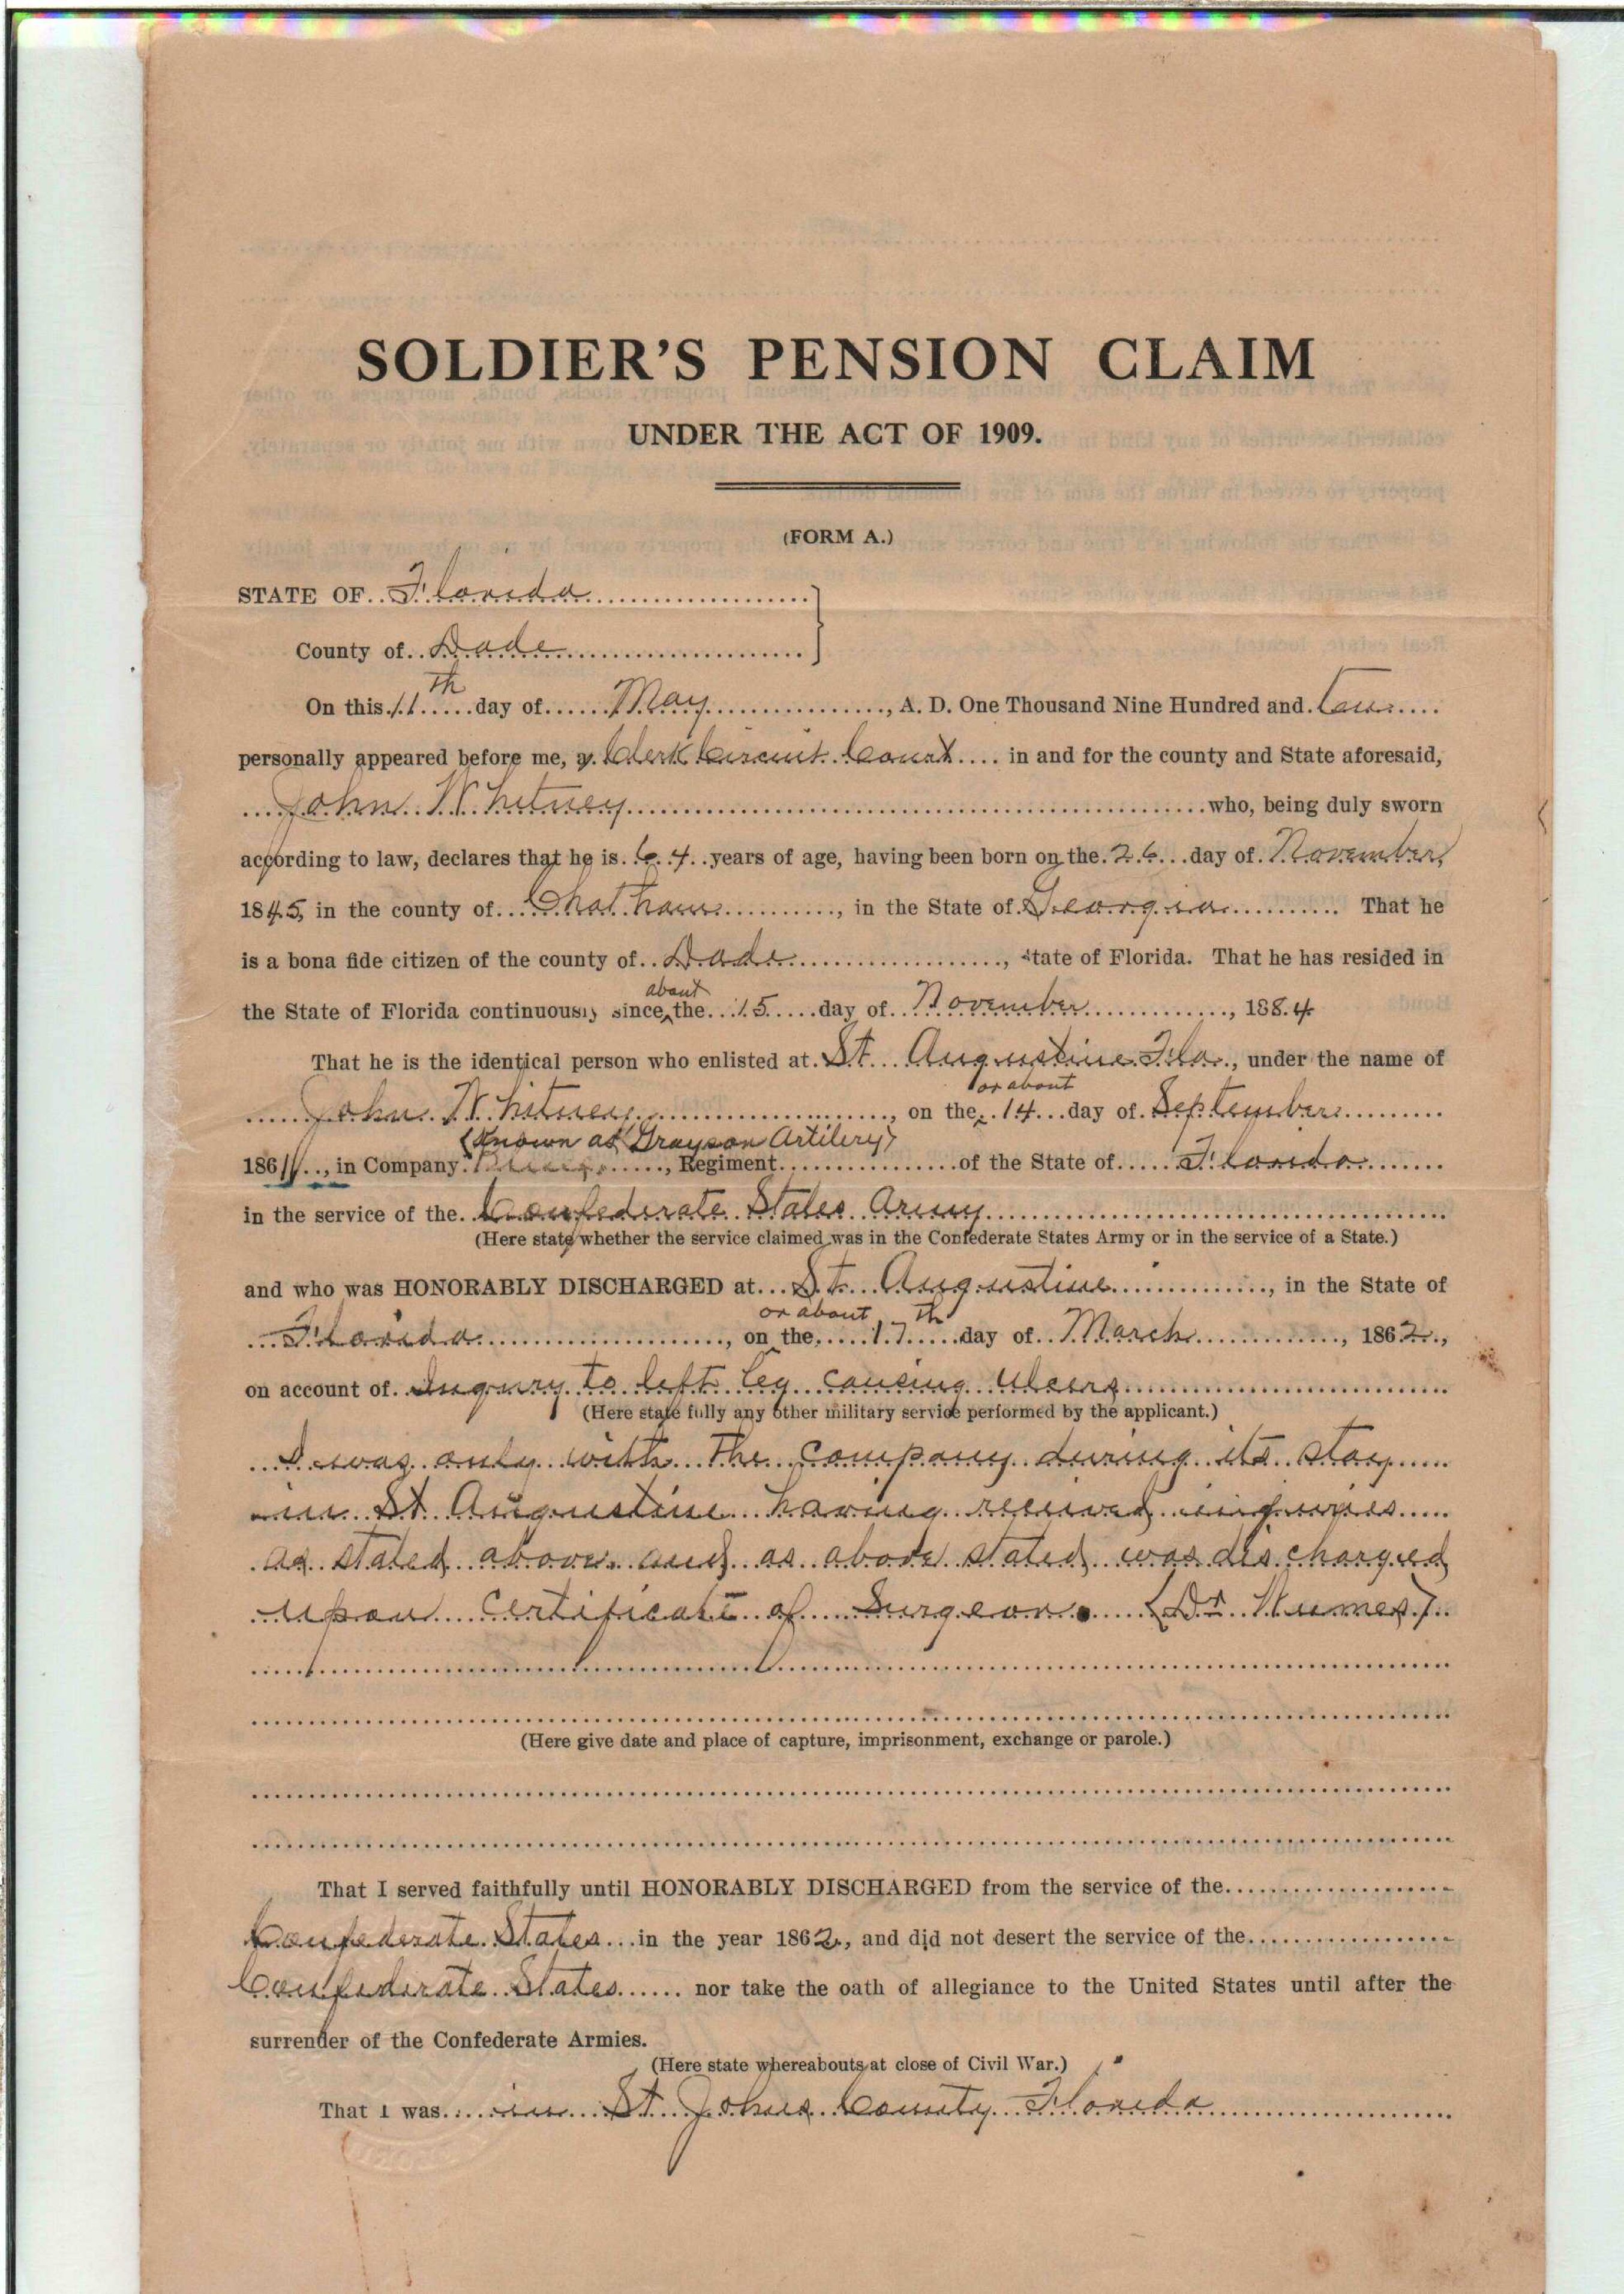 SOLDIER'S PENSION CLAIM
UNDER THE ACT OF 1909.
(FORM A.)
STATE OF Florida
County of Dade
On this 11th day of May, A. D. One Thousand Nine Hundred and ten
personally appeared before me, a Clerk Circuit Court in and for the county and State aforesaid,
John Whitney who, being duly sworn
according to law, declares that he is 64 years of age, having been born on the 26 day of November,
1845, in the county of Chatham, in the State of Georgia. That he
is a bona fide citizen of the county of Dade, State of Florida. That he has resided in
about
the State of Florida continuously since the 15 day of November, 1884
That he is the identical person who enlisted at St. Augustine Fla., under the name of
or about
John Whitney, on the 14 day of September
(Known as Grayson Artilery)
1861, in Company, Regiment of the State of Florida
in the service of the Confederate States Army
(Here state whether the service claimed was in the Confederate States Army or in the service of a State.)
and who was HONORABLY DISCHARGED at St. Augustine, in the State of
or about
Florida, on the 17th day of March, 1862,
on account of Inqury to left leg causing Ulcers
(Here state fully any other military service performed by the applicant.)
I was only with the company during its stay
in St Augustine having received injuries
as stated above and as above stated was discharged
upon certificate of Surgeon. (Dr.
(Here give date and place of capture, imprisonment, exchange or parole.)
That I served faithfully until HONORABLY DISCHARGED from the service of the
Confederate States in the year 1862, and did not desert the service of the
Confederate States nor take the oath of allegiance to the United States until after the
surrender of the Confederate Armies.
(Here state whereabouts at close of Civil War.)
That I was in St. Johns County Florida